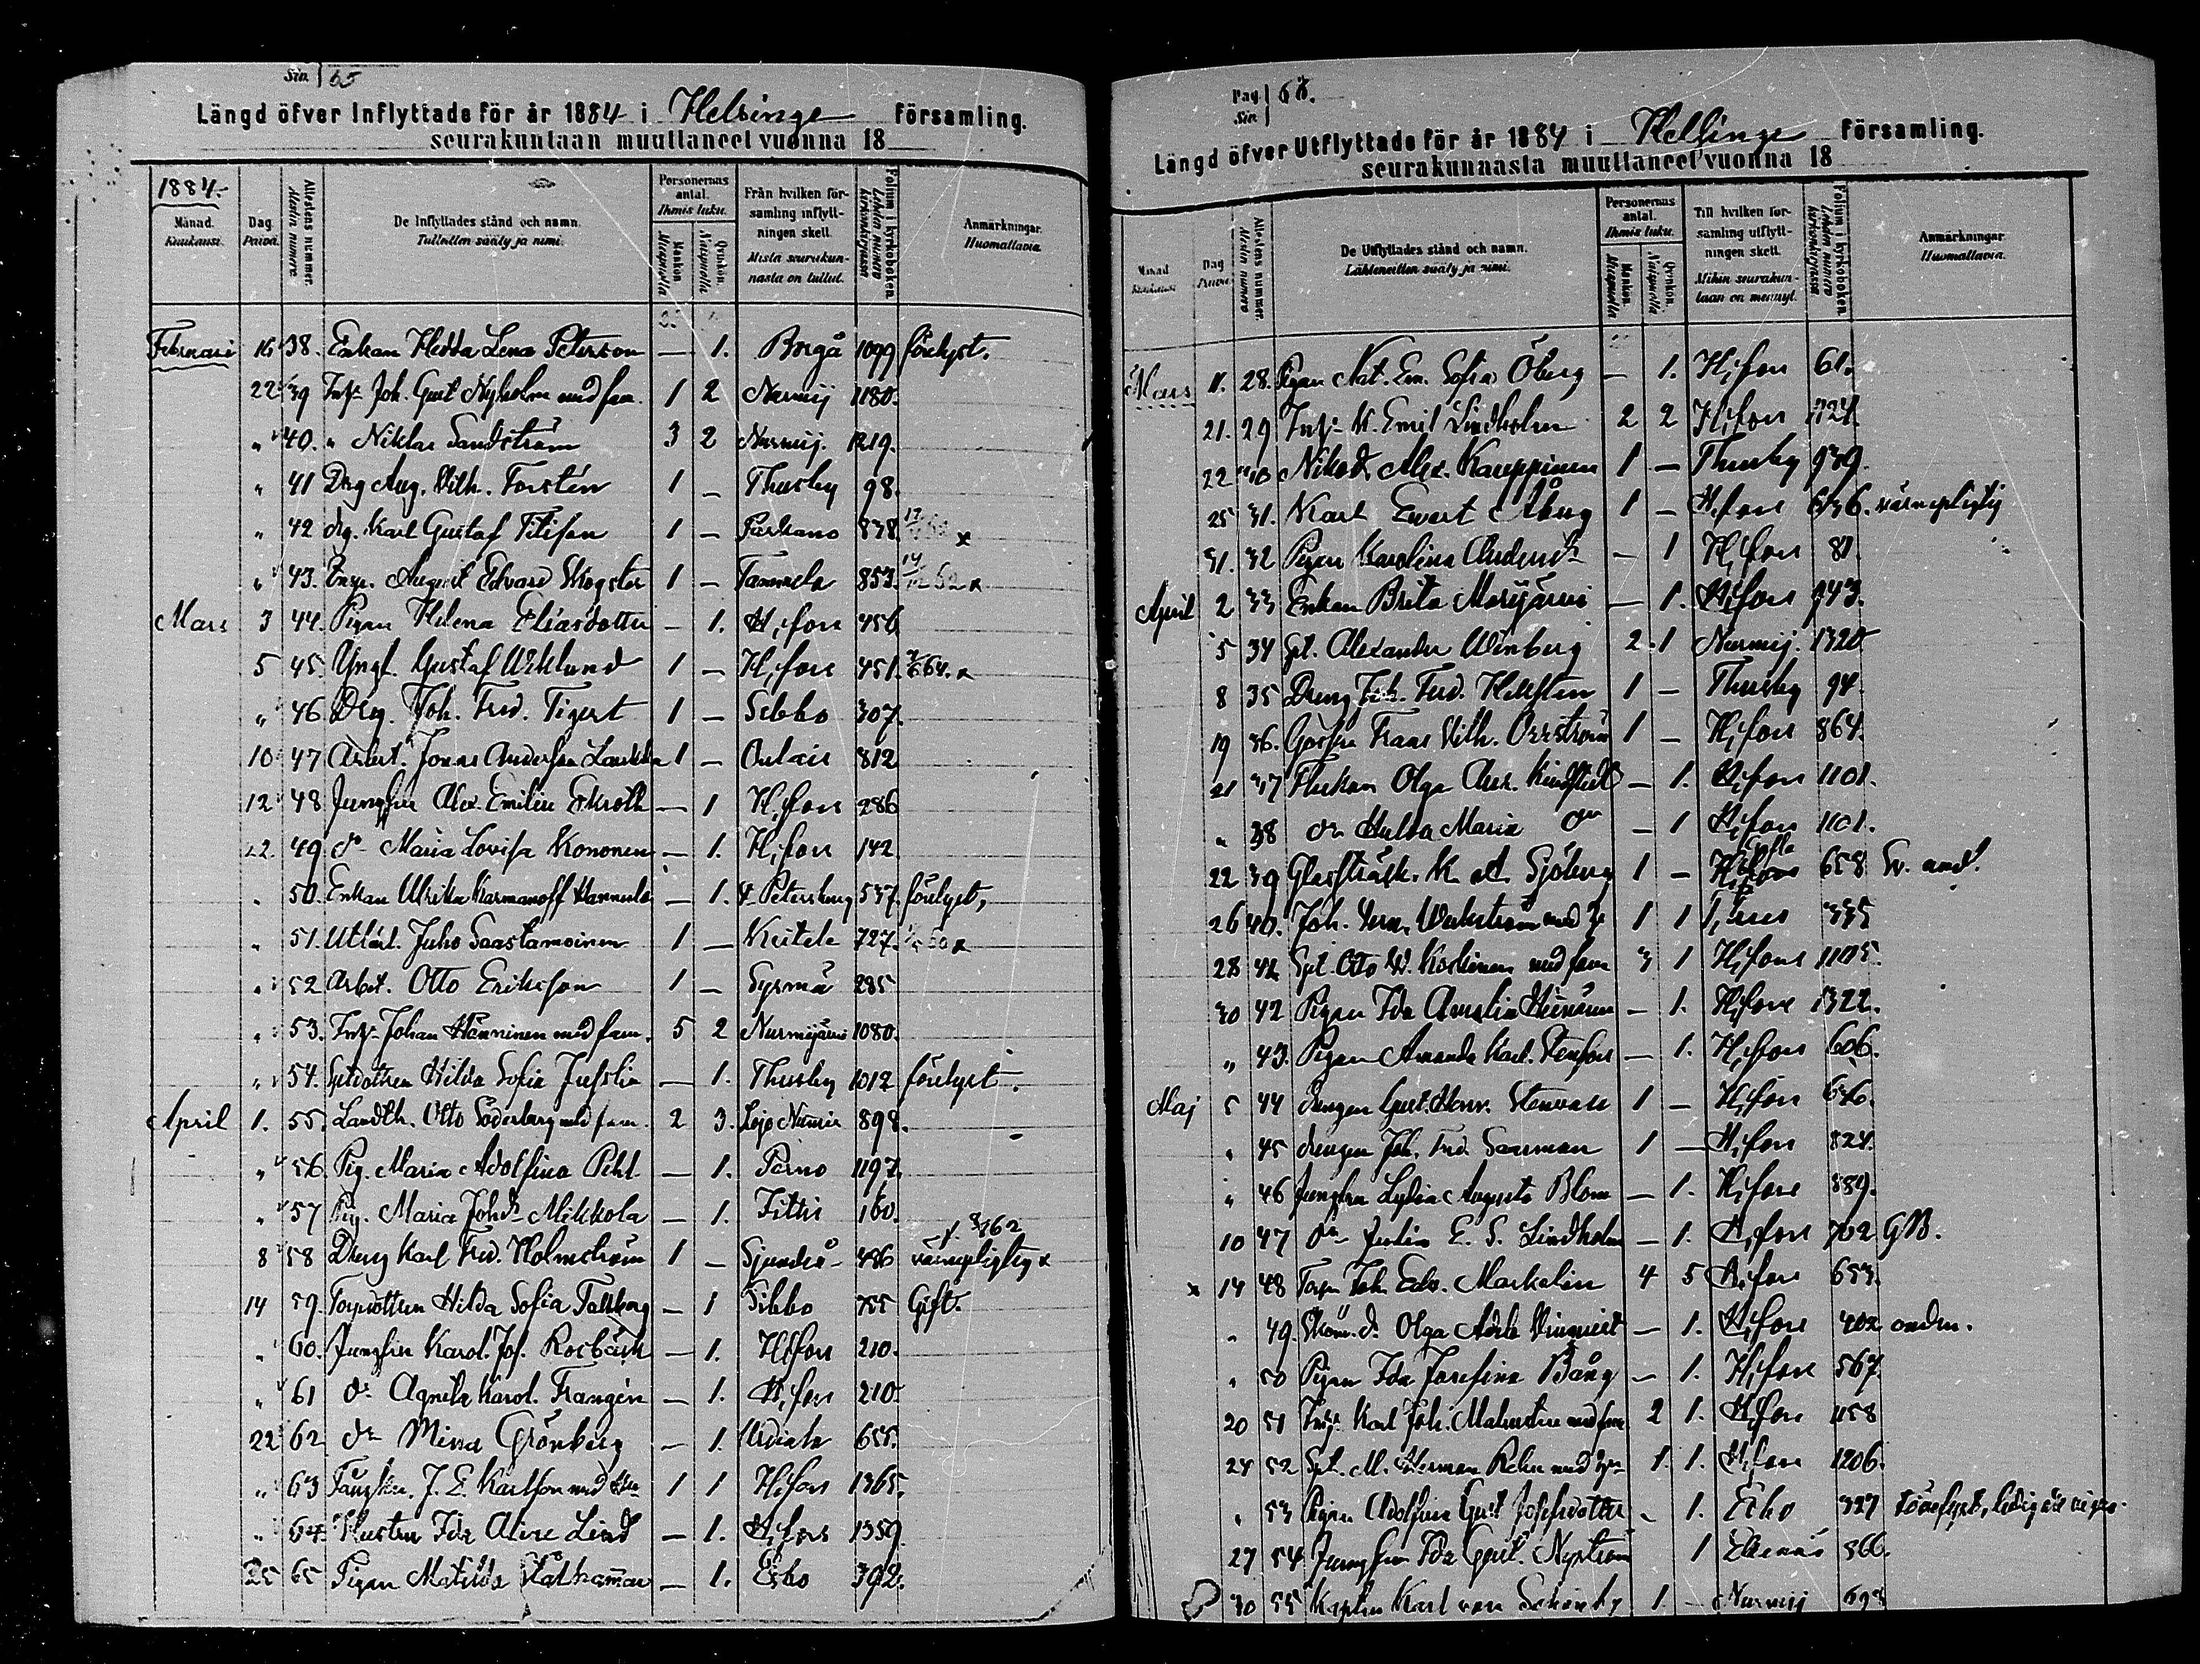 Sin. 65
Längd öfver Inflyttade för år 1884 i Helsinge församling.
seurakuntaan muuttaneet vuonna 18
1884.
Månad. Kuukausi.
Dag Päivä.
Attestens nummer. Alestin numero.
De Inflyttades stånd och namn. Tulleitten sääty ja nimi.
Personernas antal. Ihmis luku.
Mankön. Miespuolia
Qvinkön. Naispuolia
Från hvilken församling inflyttningen skett. Mistä seurakunnasta on tullut.
Folium i kyrkoboken. Lehden numero kirkonkirjassa
Anmärkningar. Huomattavia.
Februari 16 38. Enkan Hedda Lena Peterson — 1. Borgå 1099 förelyst.
22 39 Inh. Joh. Gust Nyholm med fam. 1 2 Nurmij 1180.
" 40. " Niklas Sandström 3 2 Nurmij. 1219.
" 41 Drg Aug. Vilh. Forstén 1 — Thusby 98.
" 42 drg. Karl Gustaf 1 — Parkano 838. x
" 43. August Edvard 1 — Tammela 853. x
Mars 3 44. Pigan Helena Eliasdotter — 1. H,fors 456.
5 45. Yngl. Gustaf Wiklund 1 — H,fors 451. x
" 46. Drg. Joh. Fred. Tigert 1 — Sibbo 307.
10 47 Arbet. Jonas Anderson 1 — 812
12 48 Jungfru Alex. Emilia Ekroth — 1 H,fors 286
22. 49. do Maria Lovisa Kononen — 1. H,fors 142
" 50. Enkan Ulrika Karmanoff Hannula — 1. St Petersburg 537. förelyst,
" 51. Juho Saastamoinen 1 — Keitele 727. x
" 52 Arbet. Otto Erikson 1 — Sysmä 285
" 53. Inh. Johan Hänninen med fam. 5 2 Nurmijärvi 1080.
" 54. Hilda Sofia — 1. Thusby 1012 förelyst.
April 1. 55. Landth. Otto Söderberg med fam. 2 3. Lojo 898.
" 56. Pig. Maria Adolfina — 1. Perno 1197.
" 57 Pig. Maria Johdr Mikkola — 1. 160.
8 58 Dreng Karl Fred. Holmström 1 — Sjundeå 486 värnepligtig x
14 59. Torpdottren Hilda Sofia Tallberg — 1 Sibbo 755 Gift.
" 60. Jungfru Karol. Jos. Rosbäck — 1. H,fors 210.
" 61 do Agneta Karol. Frangén — 1. H,fors 210.
22 62 do Minna Grönberg — 1. Urdiala 655.
" 63 J. E. Karlson med 1 1 H,fors 1365.
" 64. Hustru Ida Aline Lind — 1. H,fors 1359.
25 65 Pigan Matilda Stålhammar — 1. Esbo 392.
Pag Sin 66.
Längd öfver Utflyttade för år 1884 i Helsinge församling.
seurakunnasta muuttaneet vuonna 18
Månad Kuukausi
Dag Päivä.
Attestens nummer. Alestin numero
De Utflyttades stånd och namn. Lähteneitten sääty ja nimi.
Personernas antal. Ihmis luku.
Mankön. Miespuolia
Qvinkön. Naispuolia
Till hvilken församling utflyttningen skett. Mihin seurakuntaan on mennyt.
Folium i kyrkoboken. Lehden numero kirkonkirjassa
Anmärkningar. Huomattavia.
Mars 11. 28. Pigan Nat. Em. Sofia Öberg — 1. H,fors 61.
21. 29 Inh. K. Emil Lindholm 2 2 H,fors
22 30 Nikod. Alex. Kauppinen 1 — Thusby 939.
25 31. Karl Evert Åberg 1 — H,fors 636. värnepligtig
31. 32 Pigan Karolina Andersdr — 1 H,fors 81.
April 2 33 Enkan Brita — 1. H,fors 943.
5 34 Alexander Winberg 2 1 Nurmij. 1320
8 35 Dreng Joh. Fred. Hellsten 1 — Thusby 94.
19 36. Frans Vilh. Orrström 1 — H,fors 864.
21 37 Flickan Olga Alex. — 1. H,fors 1101.
" 38 do Hulda Maria do — 1 H,fors 1101.
22 39 K. A. Sjöberg 1 — 658
26 40. Joh. Werkström med 1 1 335
28 41 Otto W. Koskinen med fam 3 1 H,fors 1105.
30 42 Pigan Ida Amalia — 1. H,fors 1322.
" 43. Pigan Amanda Karl. Stenfors — 1. H,fors 606.
Maj 5 44 drengen Gust. Henr. Stenvall 1 — H,fors
" 45 drengen Joh. Fred. Saxman 1 — H,fors 824.
" 46 Jungfrun Lydia Augusta Blom — 1. H,fors 889.
10 47 do Julia E. S. Lindholm — 1. H,fors 702
x 14 48 Torp. Joh. Edv. Markelin 4 5 H,fors 653.
" 49. Olga Adela — 1. H,fors 402
" 50 Pigan Ida Josefina Bång — 1. H,fors 567.
20 51 Inh. Karl Joh. Malmsten med fam 2 1. H,fors 1158
24 52 M. Herman Rehn med 1. 1. H,fors 1206.
" 53 Pigan Adolfina Gust — 1. Esbo 327
27 54 Jungfrun Ida Gust. Nyström 1 Ekenäs 366.
30 55 Karl von 1. — Nurmij 693